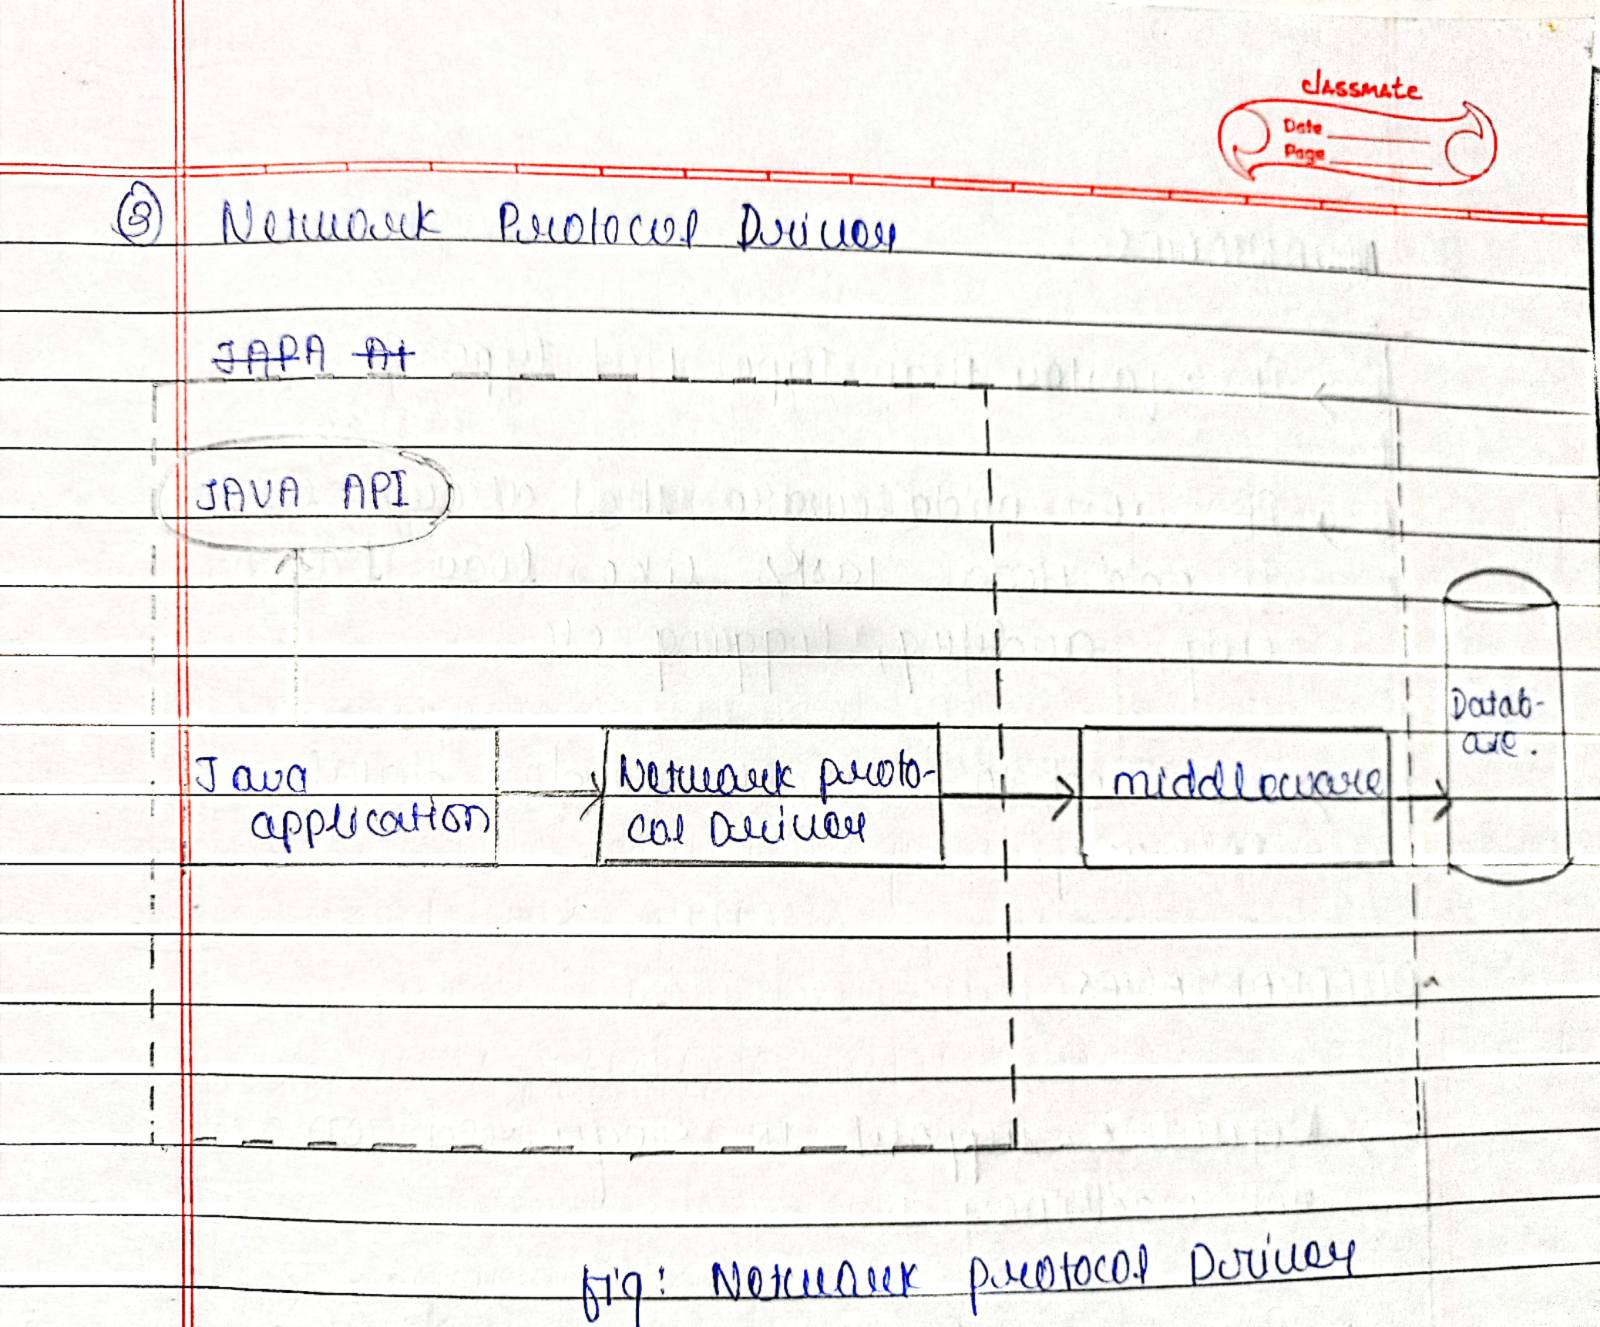 classmate
Date
Page
③ Network Protocol Driver
JAPA AI
JAVA API
Java
application
Network proto-
col Driver
middleware
Datab-
ase.
fig: Network protocol Driver